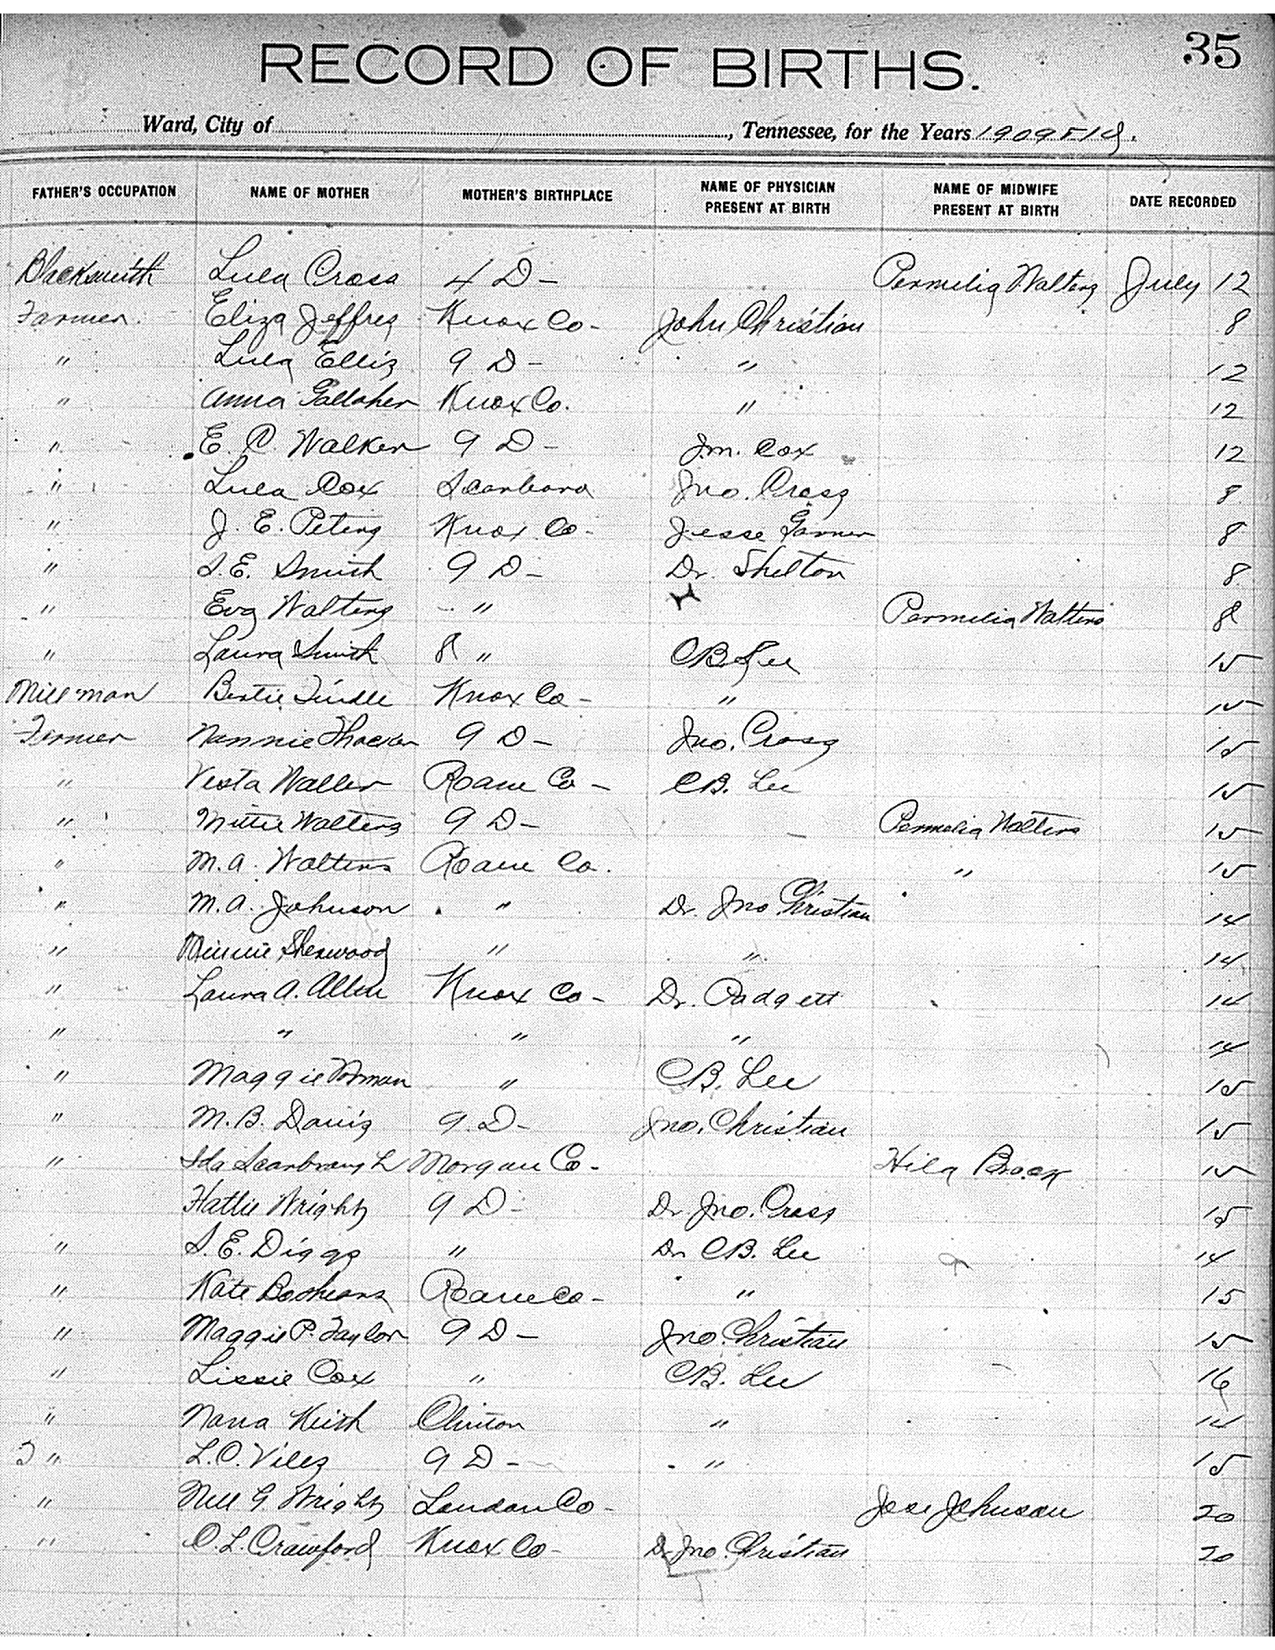 35
RECORD OF BIRTHS.
Ward, City of , Tennessee, for the Years 1909
FATHER'S OCCUPATION NAME OF MOTHER MOTHER'S BIRTHPLACE NAME OF PHYSICIAN PRESENT AT BIRTH NAME OF MIDWIFE PRESENT AT BIRTH DATE RECORDED
Blacksmith Lula Cross 4 D - Permelia Walters July 12
Farmer. Eliza Jeffres Knox Co - John Christian 8
" Lula Ellis 9 D - " 12
" Anna Gallaher Knox Co. " 12
" E. C. Walker 9 D - J.M. Cox 12
" Lula Cox Scarboro Jno. Cross 8
" J. E. Peters Knox Co - Jesse Garner 8
" S. E. Smith 9 D - Dr. Shelton 8
" Eva Walters " Permelia Walters 8
" Laura Smith 8 " C B Lee 15
Mill man Bertie Tindle Knox Co - " 15
Farmer Nannie Thacker 9 D - Jno. Cross 15
" Vesta Waller Roane Co - C B. Lee 15
" Mittie Walters 9 D - - Permelia Walters 15
" M. A. Walters Roane Co. " 15
" M. A. Johnson " Dr. Jno Christian 14
" Minnie Sherwood " " 14
" Laura A. Allen Knox Co - Dr. Padgett 14
" " " " 14
" Maggie " C B. Lee 15
" M. B. Davis 9 D - Jno. Christian 15
" Ida Scarbrough Morgan Co - Hila Brock 15
Hattie Wright 9 D - Dr. Jno. Cross 15
" S. E. Diggs " Dr C B. Lee 14
" Kate Roane Co - " 15
" Maggie P. Taylor 9 D - Jno. Christian 15
" Lissie Cox " C B. Lee 16
" Nora Keith Clinton " 14
" L. O. Viles 9 D - " 15
" Nell G Wright Loudon Co - Jose Johnson 20
" O. L. Crawford Knox Co - Dr Jno. Christian 20